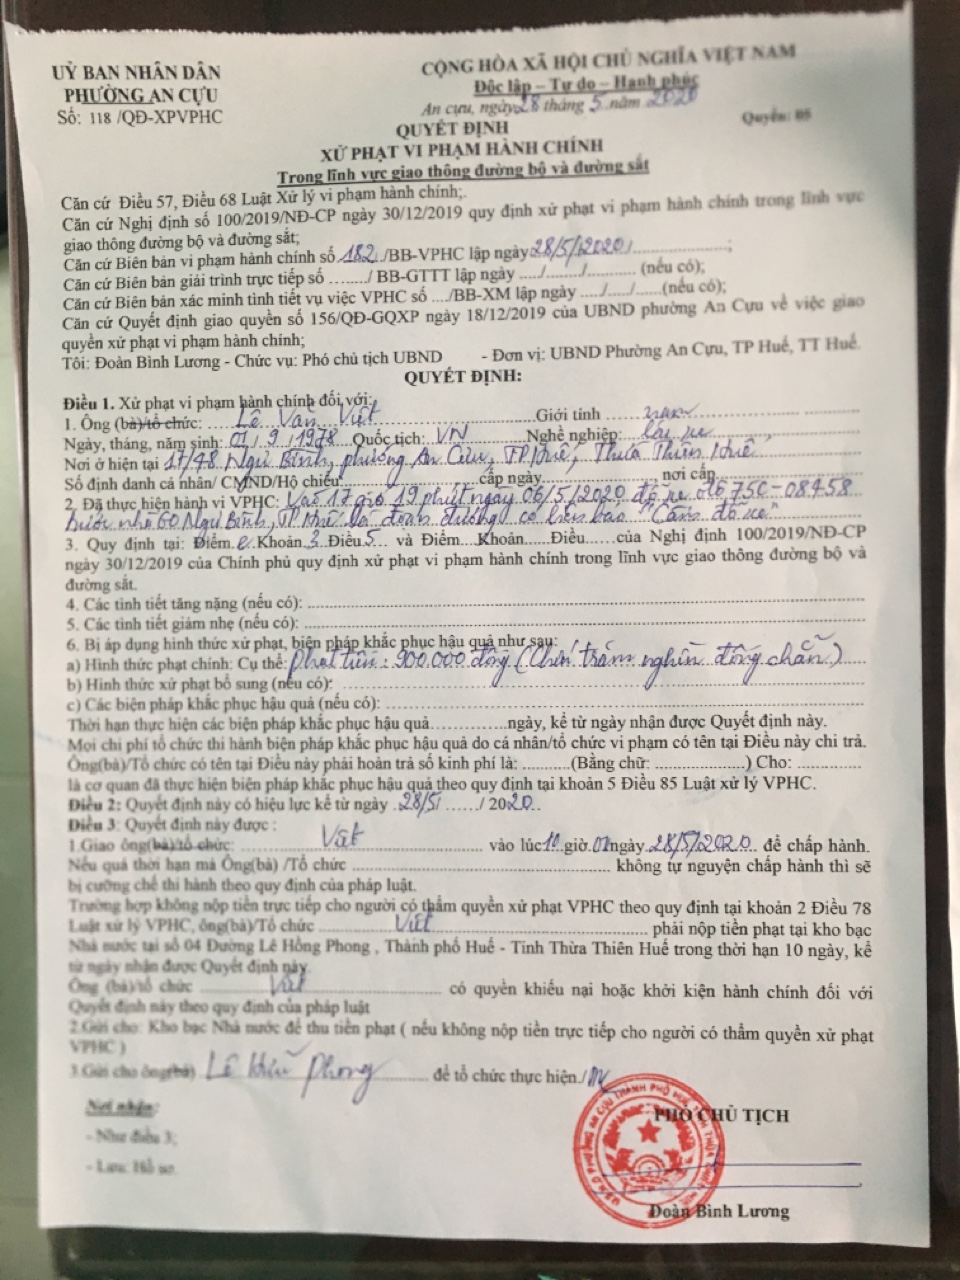 UỶ BAN NHÂN DÂN
PHƯỜNG AN CỰU
Số: 118 /QĐ-XPVPHC
CỘNG HÒA XÃ HỘI CHỦ NGHĨA VIỆT NAM
Độc lập – Tự do – Hạnh phúc
An cựu, ngày 28 tháng 5 năm 2020
Quyển: 05
QUYẾT ĐỊNH
XỬ PHẠT VI PHẠM HÀNH CHÍNH
Trong lĩnh vực giao thông đường bộ và đường sắt
Căn cứ Điều 57, Điều 68 Luật Xử lý vi phạm hành chính;.
Căn cứ Nghị định số 100/2019/NĐ-CP ngày 30/12/2019 quy định xử phạt vi phạm hành chính trong lĩnh vực
giao thông đường bộ và đường sắt;
Căn cứ Biên bản vi phạm hành chính số 182 /BB-VPHC lập ngày 28/5/2020/..............;
Căn cứ Biên bản giải trình trực tiếp số ......../ BB-GTTT lập ngày ..../......./........... (nếu có);
Căn cứ Biên bản xác minh tình tiết vụ việc VPHC số .../BB-XM lập ngày ..../...../......(nếu có);
Căn cứ Quyết định giao quyền số 156/QĐ-GQXP ngày 18/12/2019 của UBND phường An Cựu về việc giao
quyền xử phạt vi phạm hành chính;
Tôi: Đoàn Bình Lương - Chức vụ: Phó chủ tịch UBND - Đơn vị: UBND Phường An Cựu, TP Huế, TT Huế.
QUYẾT ĐỊNH:
Điều 1. Xử phạt vi phạm hành chính đối với:
1. Ông (bà)/tổ chức: Lê Văn Việt Giới tính nam
Ngày, tháng, năm sinh: 01/9/1978 Quốc tịch: VN Nghề nghiệp: lái xe
Nơi ở hiện tại 17/48 Ngự Bình, phường An Cựu, TP Huế, Thừa Thiên Huế
Số định danh cá nhân/ CMND/Hộ chiếu:..................cấp ngày.................. nơi cấp..................
2. Đã thực hiện hành vi VPHC: Vào 17 giờ 19 phút ngày 06/5/2020 đỗ xe ôtô 75C-08458
trước nhà 60 Ngự Bình, TP Huế là đoạn đường có biển báo "Cấm đỗ xe"
3. Quy định tại: Điểm e Khoản 3 Điều 5 và Điểm....Khoản......Điều...... của Nghị định 100/2019/NĐ-CP
ngày 30/12/2019 của Chính phủ quy định xử phạt vi phạm hành chính trong lĩnh vực giao thông đường bộ và
đường sắt.
4. Các tình tiết tăng nặng (nếu có): ..................
5. Các tình tiết giảm nhẹ (nếu có): ..................
6. Bị áp dụng hình thức xử phạt, biện pháp khắc phục hậu quả như sau:
a) Hình thức phạt chính: Cụ thể: phạt tiền: 900.000 đồng (Chín trăm nghìn đồng chẵn)
b) Hình thức xử phạt bổ sung (nếu có): ..................
c) Các biện pháp khắc phục hậu quả (nếu có): ..................
Thời hạn thực hiện các biện pháp khắc phục hậu quả..................ngày, kể từ ngày nhận được Quyết định này.
Mọi chi phí tổ chức thi hành biện pháp khắc phục hậu quả do cá nhân/tổ chức vi phạm có tên tại Điều này chi trả.
Ông(bà)/Tổ chức có tên tại Điều này phải hoàn trả số kinh phí là: ...........(Bằng chữ: ..................) Cho: .............
là cơ quan đã thực hiện biện pháp khắc phục hậu quả theo quy định tại khoản 5 Điều 85 Luật xử lý VPHC.
Điều 2: Quyết định này có hiệu lực kể từ ngày 28/5/ ....../ 2020..
Điều 3: Quyết định này được :
1.Giao ông(bà)/tổ chức: Việt vào lúc 10 giờ 07 ngày 28/5/2020 để chấp hành.
Nếu quá thời hạn mà Ông(bà) /Tổ chức .................. không tự nguyện chấp hành thì sẽ
bị cưỡng chế thi hành theo quy định của pháp luật.
Trường hợp không nộp tiền trực tiếp cho người có thẩm quyền xử phạt VPHC theo quy định tại khoản 2 Điều 78
Luật xử lý VPHC, ông(bà)/Tổ chức Việt phải nộp tiền phạt tại kho bạc
Nhà nước tại số 04 Đường Lê Hồng Phong , Thành phố Huế - Tỉnh Thừa Thiên Huế trong thời hạn 10 ngày, kể
từ ngày nhận được Quyết định này.
Ông (bà)/tổ chức Việt có quyền khiếu nại hoặc khởi kiện hành chính đối với
Quyết định này theo quy định của pháp luật
2.Gửi cho: Kho bạc Nhà nước để thu tiền phạt ( nếu không nộp tiền trực tiếp cho người có thẩm quyền xử phạt
VPHC )
3.Gửi cho ông(bà) Lê Hữu Phong để tổ chức thực hiện./
Nơi nhận:
- Như điều 3;
- Lưu: Hồ sơ.
PHÓ CHỦ TỊCH
Đoàn Bình Lương